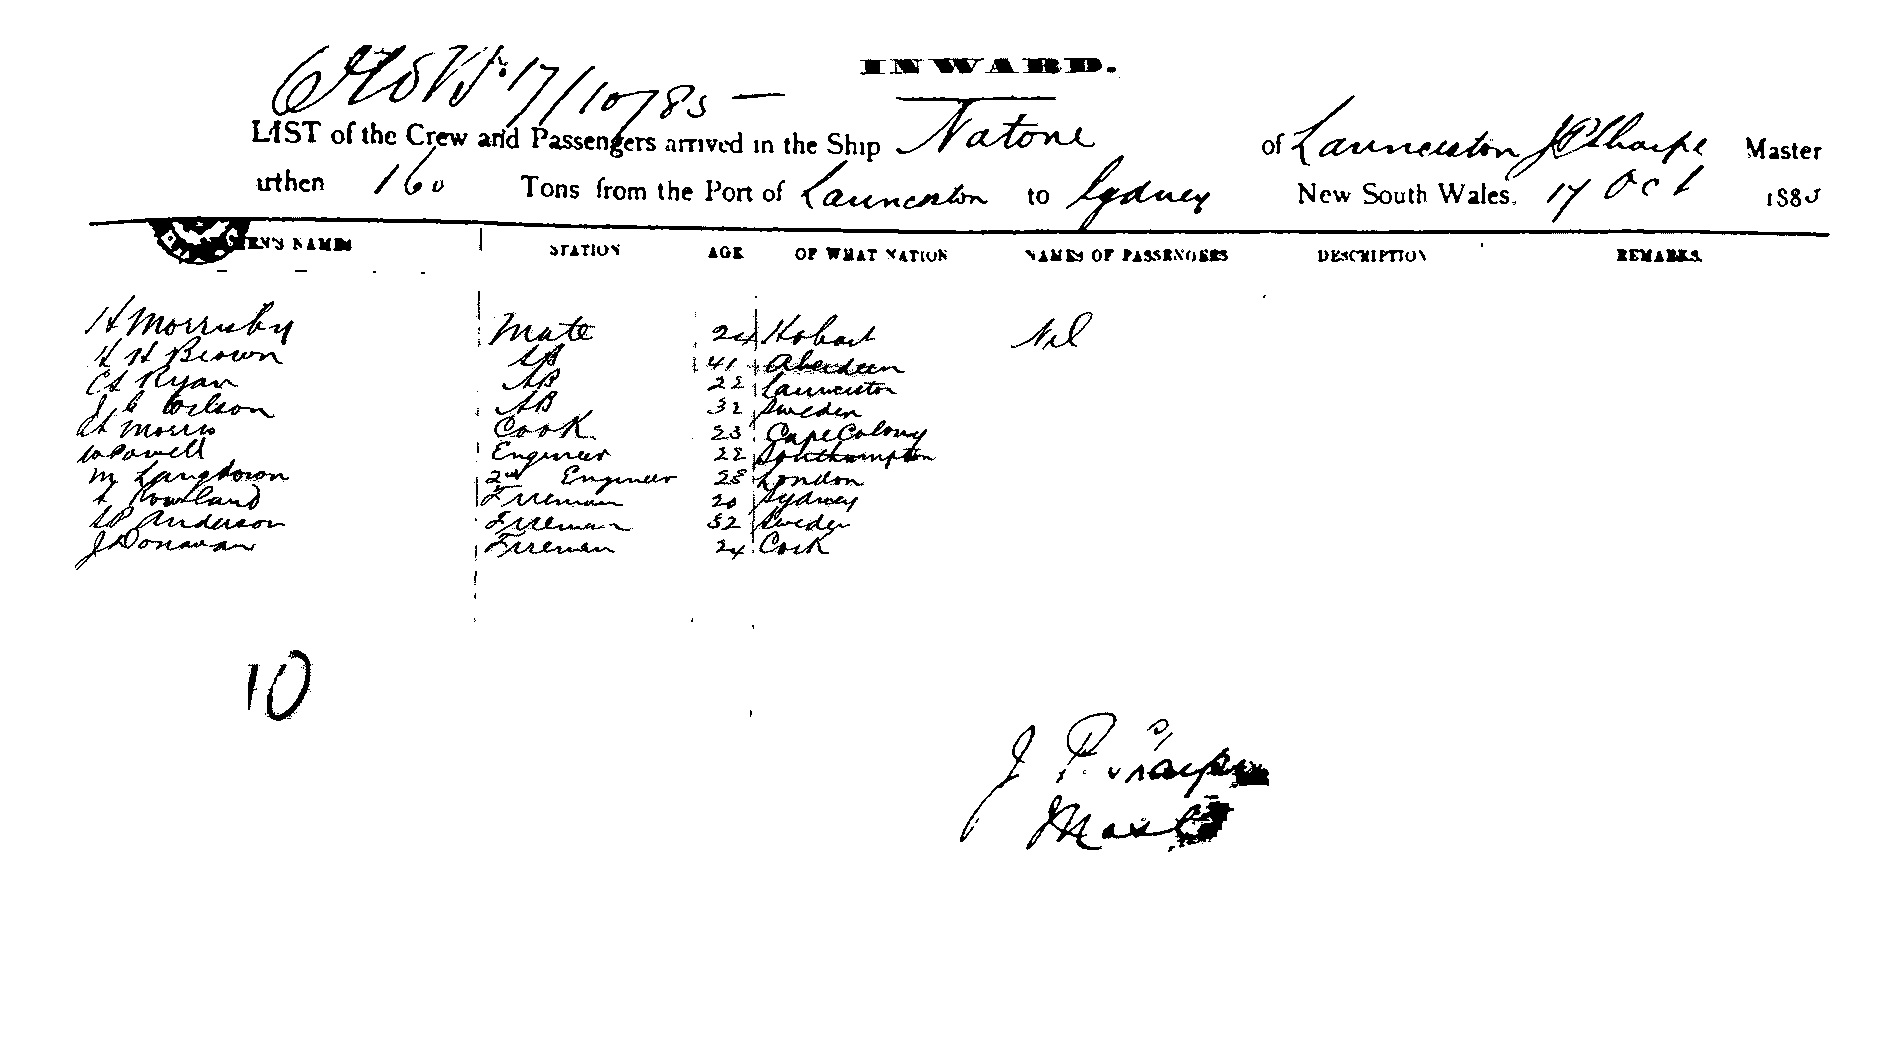 INWARD.
17/10/85 —
LIST of the Crew and Passengers arrived in the Ship Natone of Launceston J P Sharpe Master
urthen 160 Tons from the Port of Launceston to Sydney New South Wales, 17 Oct 1885
EN'S NAMES STATION AGE OF WHAT NATION NAMES OF PASSENGERS DESCRIPTION REMARKS.
H Morrisby Mate 24 Hobart Nil
H H Brown AB 41 Aberdeen
Ryan AB 22 Launceston
J C Wilson AB 32 Sweden
Morris Cook 23 Cape Colony
W Powell Engineer 22 Southampton
M Langdown 2nd Engineer 28 London
Rowland Fireman 20 Sydney
Anderson Fireman 32 Sweden
J Donavan Fireman 24 Cork
10
J P Sharpe
Master